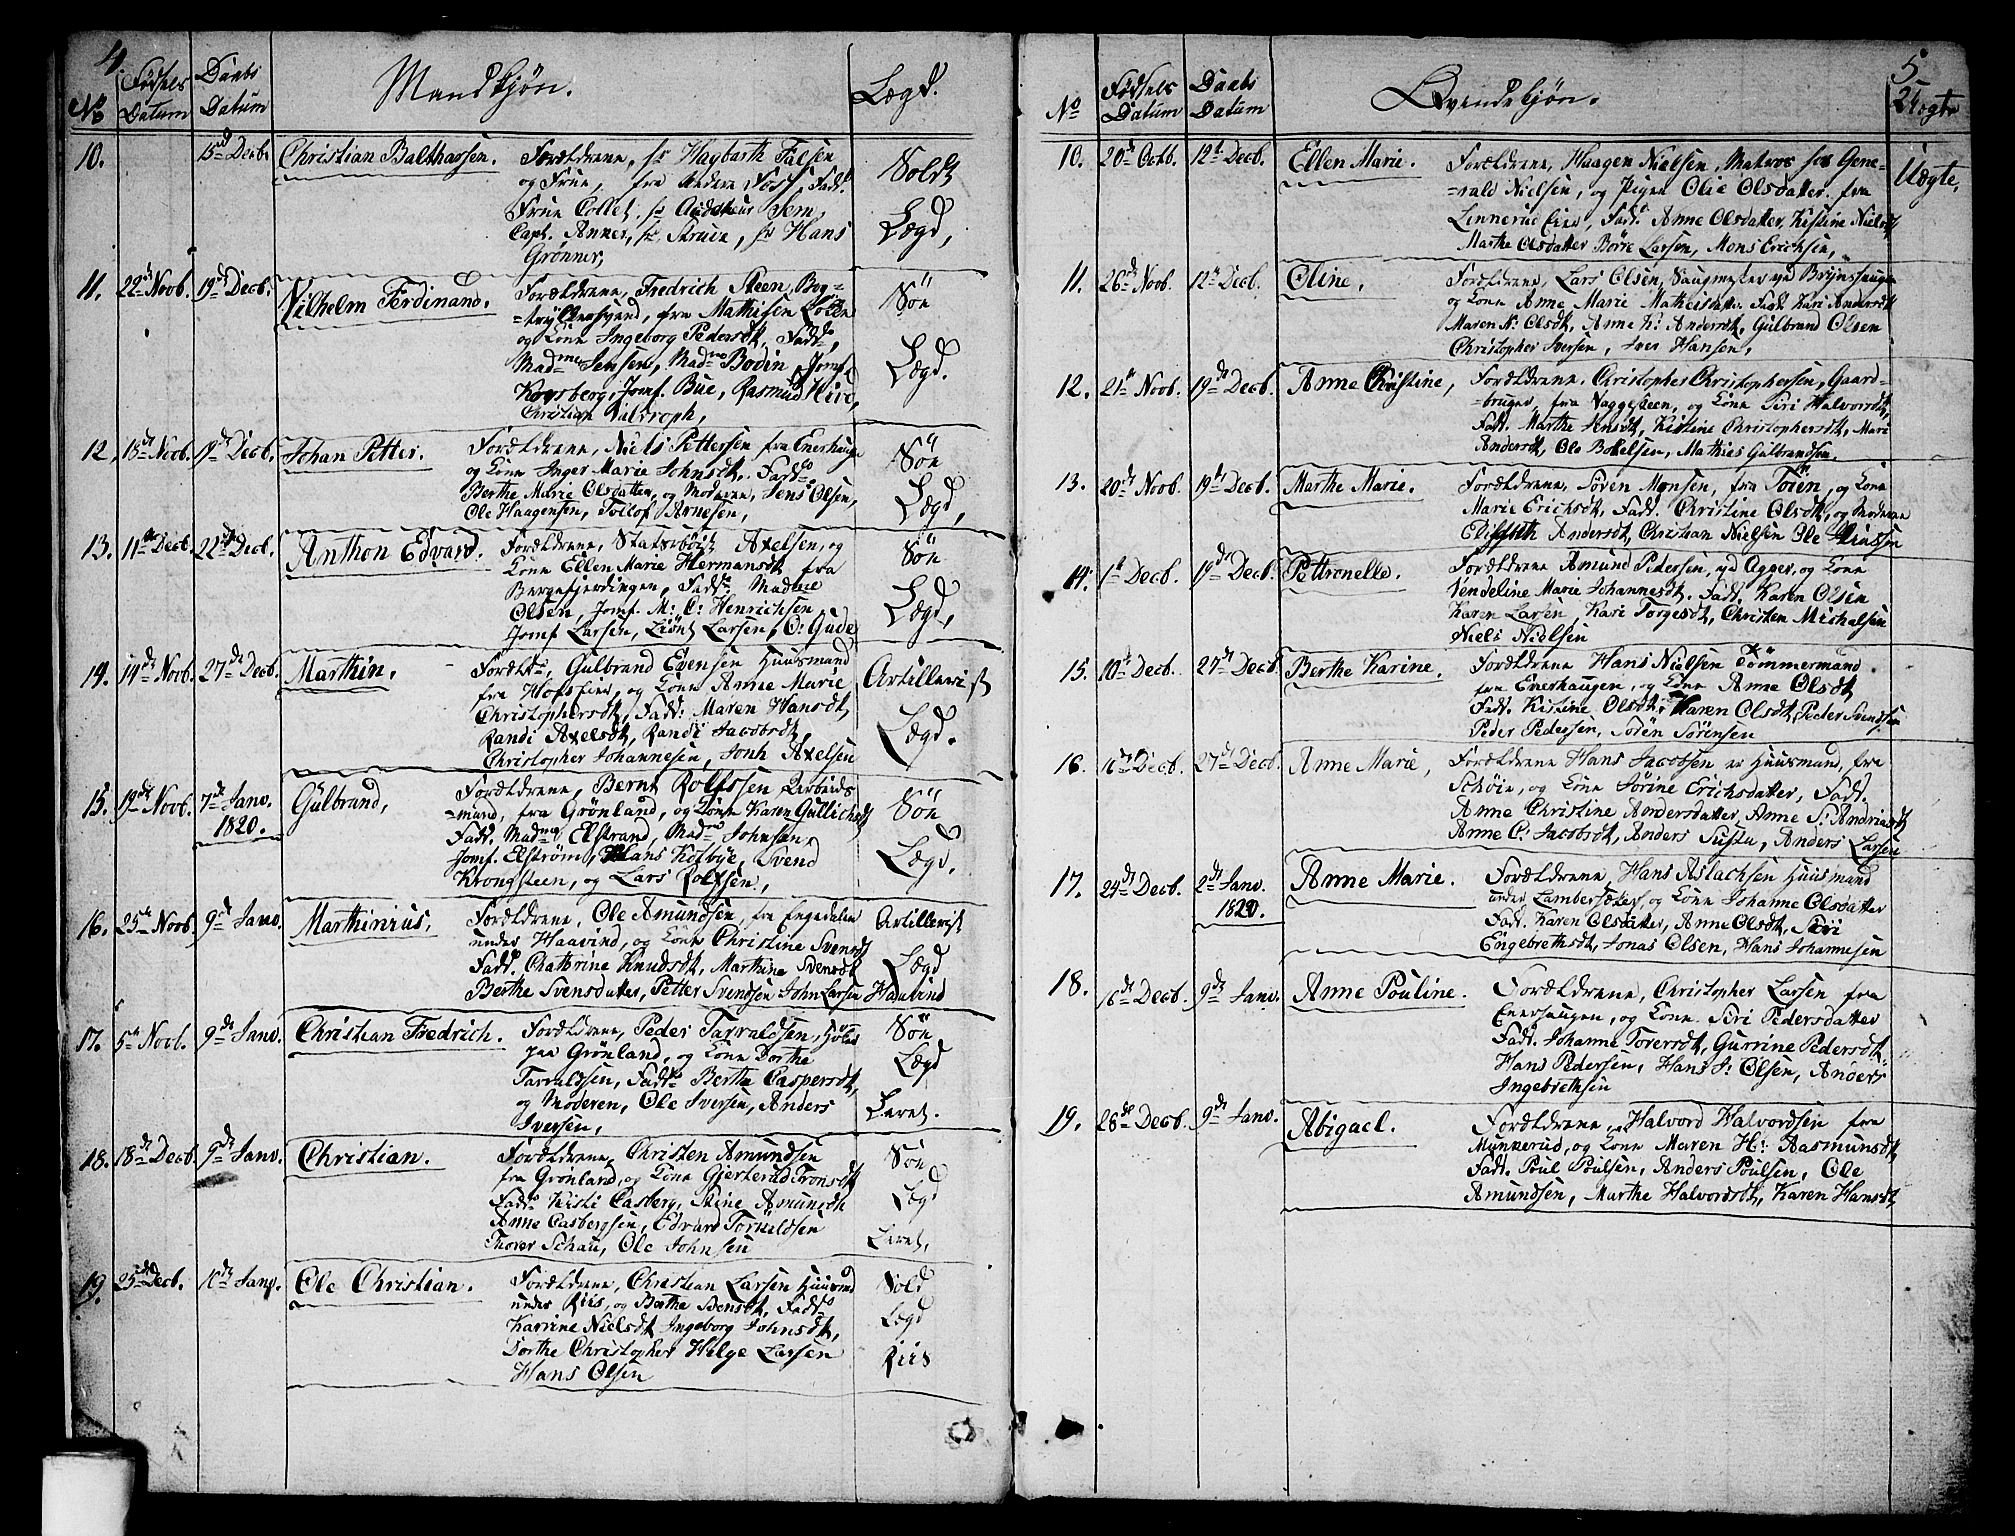 4.
No
Fødsels Datum
Daabs Datum
Mandkjøn.
Lægd.
10.
15d Decb.
Christian Balthassen.
Forældrene, hr Hagbarth Falsen
og Frue, fra Nedere Foss, Fadd.
Frue Collet, hr Sem,
Capt. Anner, hr Struve, hr Hans
Grønner,
Soldt
Lægd,
11.
22de Novb.
19de Decb.
Vilhelm Ferdinand.
Forældrene, Fredrich Steen, Bog-
=trykkersvend, fra Mathisen Løkke
og Kone Ingeborg Pedersdt, Fadd.
Madme Jensen, Madme Bodin, Jomf.
Kongsberg, Jomf. Bue, Rasmus Hive,
Christian
Søe
Lægd.
12,
18de Novb.
19de Decb.
Johan Petter.
Forældrene, Niels Pettersen fra Enerhaugen
og Kone Inger Marie Johnsdt, Fadd.
Berthe Marie Olsdatter, og Moderen, Jens Olsen,
Ole Haagensen, Tollof Arnesen,
Søe
Lægd,
13.
11te Decb.
22de Decb.
Anthon Edvard.
Forældrene, Axelsen, og
Kone Ellen Marie Hermansdt fra
Bergsfjerdingen, Fadd. Madme
Olsen, Jomf. M: C: Henrichsen
Jomf Larsen, Larsen, O: Gude
Søe
Lægd,
14.
14de Novb.
27de Decb.
Marthin.
Forældr, Gulbrand Evensen Huusmand
fra Hofseier, og Kone Anne Marie
Christophersdt, Fadd: Maren Hansdt,
Randi Axelsdt, Randi Jacobsdt,
Christopher Johannesen, Jonh Axelsen
Artillerist
Lægd.
15.
19de Novb.
7de Janv.
1820.
Gulbrand,
Forældrene, Bernt Rolfssen Arbeids
=mand, fra Grønland, og Kone Karen Gullichsdt
Fadd. Madme Elstrand, Madme Johnsen,
Jomf. Elstrøm, Hans Kolbye, Svend
Krongsteen, og Lars Rolfsen,
Søe
Lægd.
16.
25de Novb.
9de Janv.
Marthinius.
Forældrene, Ole Amundsen, fra Engedalen
under Haavind, og Kone Christine Svensdt
Fadd. Chattrine Knudsdt, Marthine Svensdt
Berthe Svensdatter, Petter Svendsen John Larsen
Artillerist
Lægd
Haavind
17.
5te Novb.
9de Janv.
Christian Fredrich.
Forældrene, Peder Tarraldsen,
paa Grønland, og Kone Dorthe
Tarraldsen, Fadd. Berthe Caspersdt,
og Moderen, Ole Iversen, Anders
Iversen,
Søe
Lægd
Leret.
18.
18de Decb.
9de Janv.
Christian.
Forældrene, Christen Amundsen
fra Grønland, og Kone Gjertrud Tronsdt
Fadd. Kisti Casberg, Stine Amunsdt
Anne Casbergsen, Edvard Torkildsen
Thorer Schau, Ole Johnsen
Søe
Lægd
Leret,
19.
25de Decb.
10de Janv.
Ole Christian.
Forældrene, Christian Larsen Huusmd
under Riis, og Berthe Bensdt, Fadd.
Karine Nielsdt Ingeborg Johnsdt,
Dorthe Christopher Helge Larsen
Hans Olsen
Sold
Lægd
Riis
5
No
Fødsels Datum
Daabs Datum
Qvindekjøn.
Uægte
10.
20de Octb.
12te Decb.
Ellen Marie.
Forældrene, Haagen Nielsen, Matros hos Gene-
=rald Nielsen, og Pigen Olie Olsdatter fra
Linnerud Eier, Fadd. Anne Olsdatter, Kistine Nielsdt
Marthe Olsdatter Børre Larsen, Mons Erichsen,
Uægte,
11.
26de Novb.
12te Decb.
Oline,
Forældrene, Lars Olsen, Saugmester ved Brynssaugen
og Kone Anne Marie Matheisdatter Fadd. Kari Andersdt
Maren N: Olsdt, Anne K: Andersdt, Gulbrand Olsen
Christopher Iversen, Iver Hansen,
12.
21de Novb.
19de Decb.
Anne Christine,
Forældrene, Christopher Christophersen, Gaard-
=bruger fra Vaggesteen, og Kone Siri Halvorsdt,
Fadd. Marthe Jensdt, Kistine Christophersdt, Mari
Andersdt, Ole Botelsen, Mathias Gulbrandsen.
13.
20de Novb.
19de Decb.
Marthe Marie.
Forældrene, Søren Monsen, fra Tøien, og Kone
Marie Erichsdt, Fadd. Christine Olsdt, og Moderen
Elisabeth Andersdt, Christian Nielsen Ole
14.
1te Decb.
19de Decb.
Pettronelle.
Forældrene Amund Pedersen, ved Agger, og Kone
Vendeline Marie Johannesdt. Fadd. Karen Olsen
Karen Larsen, Kari Torgesdt, Christen Michalsen
Niels Nielsen
15.
10de Decb.
27de Decb.
Berthe Karine.
Forældrene Hans Nielsen Tømmermand
fra Enerhaugen, og Kone Anne Olsdt
Fadd. Kistine Olsdt, Karen Olsdt, Peder Svendsen
Peder Pedersen, Søren Sørensen
16.
16de Decb.
27de Decb.
Anne Marie,
Forældrene Hans Jacobsen er Huusmand, fra
Schøie, og Kone Sørine Erichsdatter, Fadd.
Anne Christine Andersdatter, Anne S: Andriasdt
Anne C: Jacobsdt, Anders Anders Larsen
17.
24de Decb.
2de Janv.
1820.
Anne Marie.
Forældrene, Hans Aslachsen Huusmand
under Lambersæter, og Kone Johanne Olsdatter
Fadd. Karen Olsdatter, Anne Olsdt, Siri
Engebrethsdt, Jonas Olsen, Hans Johannesen
18.
16de Decb.
9de Janv.
Anne Pouline.
Forældrene, Christopher Larsen fra
Enerhaugen, og Kone Siri Pedersdatter
Fadd. Johanne Torersdt, Gurrine Pedersdt.
Hans Pedersen, Hans J: Olsen, Anders
Ingebrethsen
19.
26de Decb.
9de Janv.
Abigael.
Forældrene, Halvord Halvordsen fra
Munkerud, og Kone Maren H: Rasmunsdt
Fadd. Poul Poulsen, Anders Poulsen, Ole
Amundsen, Marthe Halvordsdt, Karen Hansdt